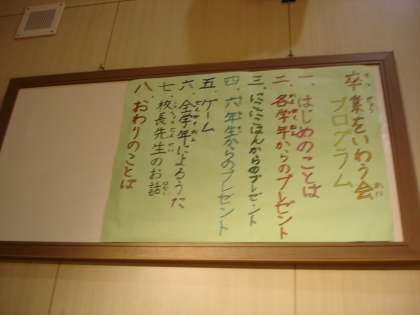 卒業をいわう会
プログラム
一、はじめのことば
二、各学年からのプレゼント
三、にこにこはんからのプレゼント
四、六年生からのプレゼント
五、ゲーム
六、全学年によるうた
七、校長先生のお話
八、おわりのことば